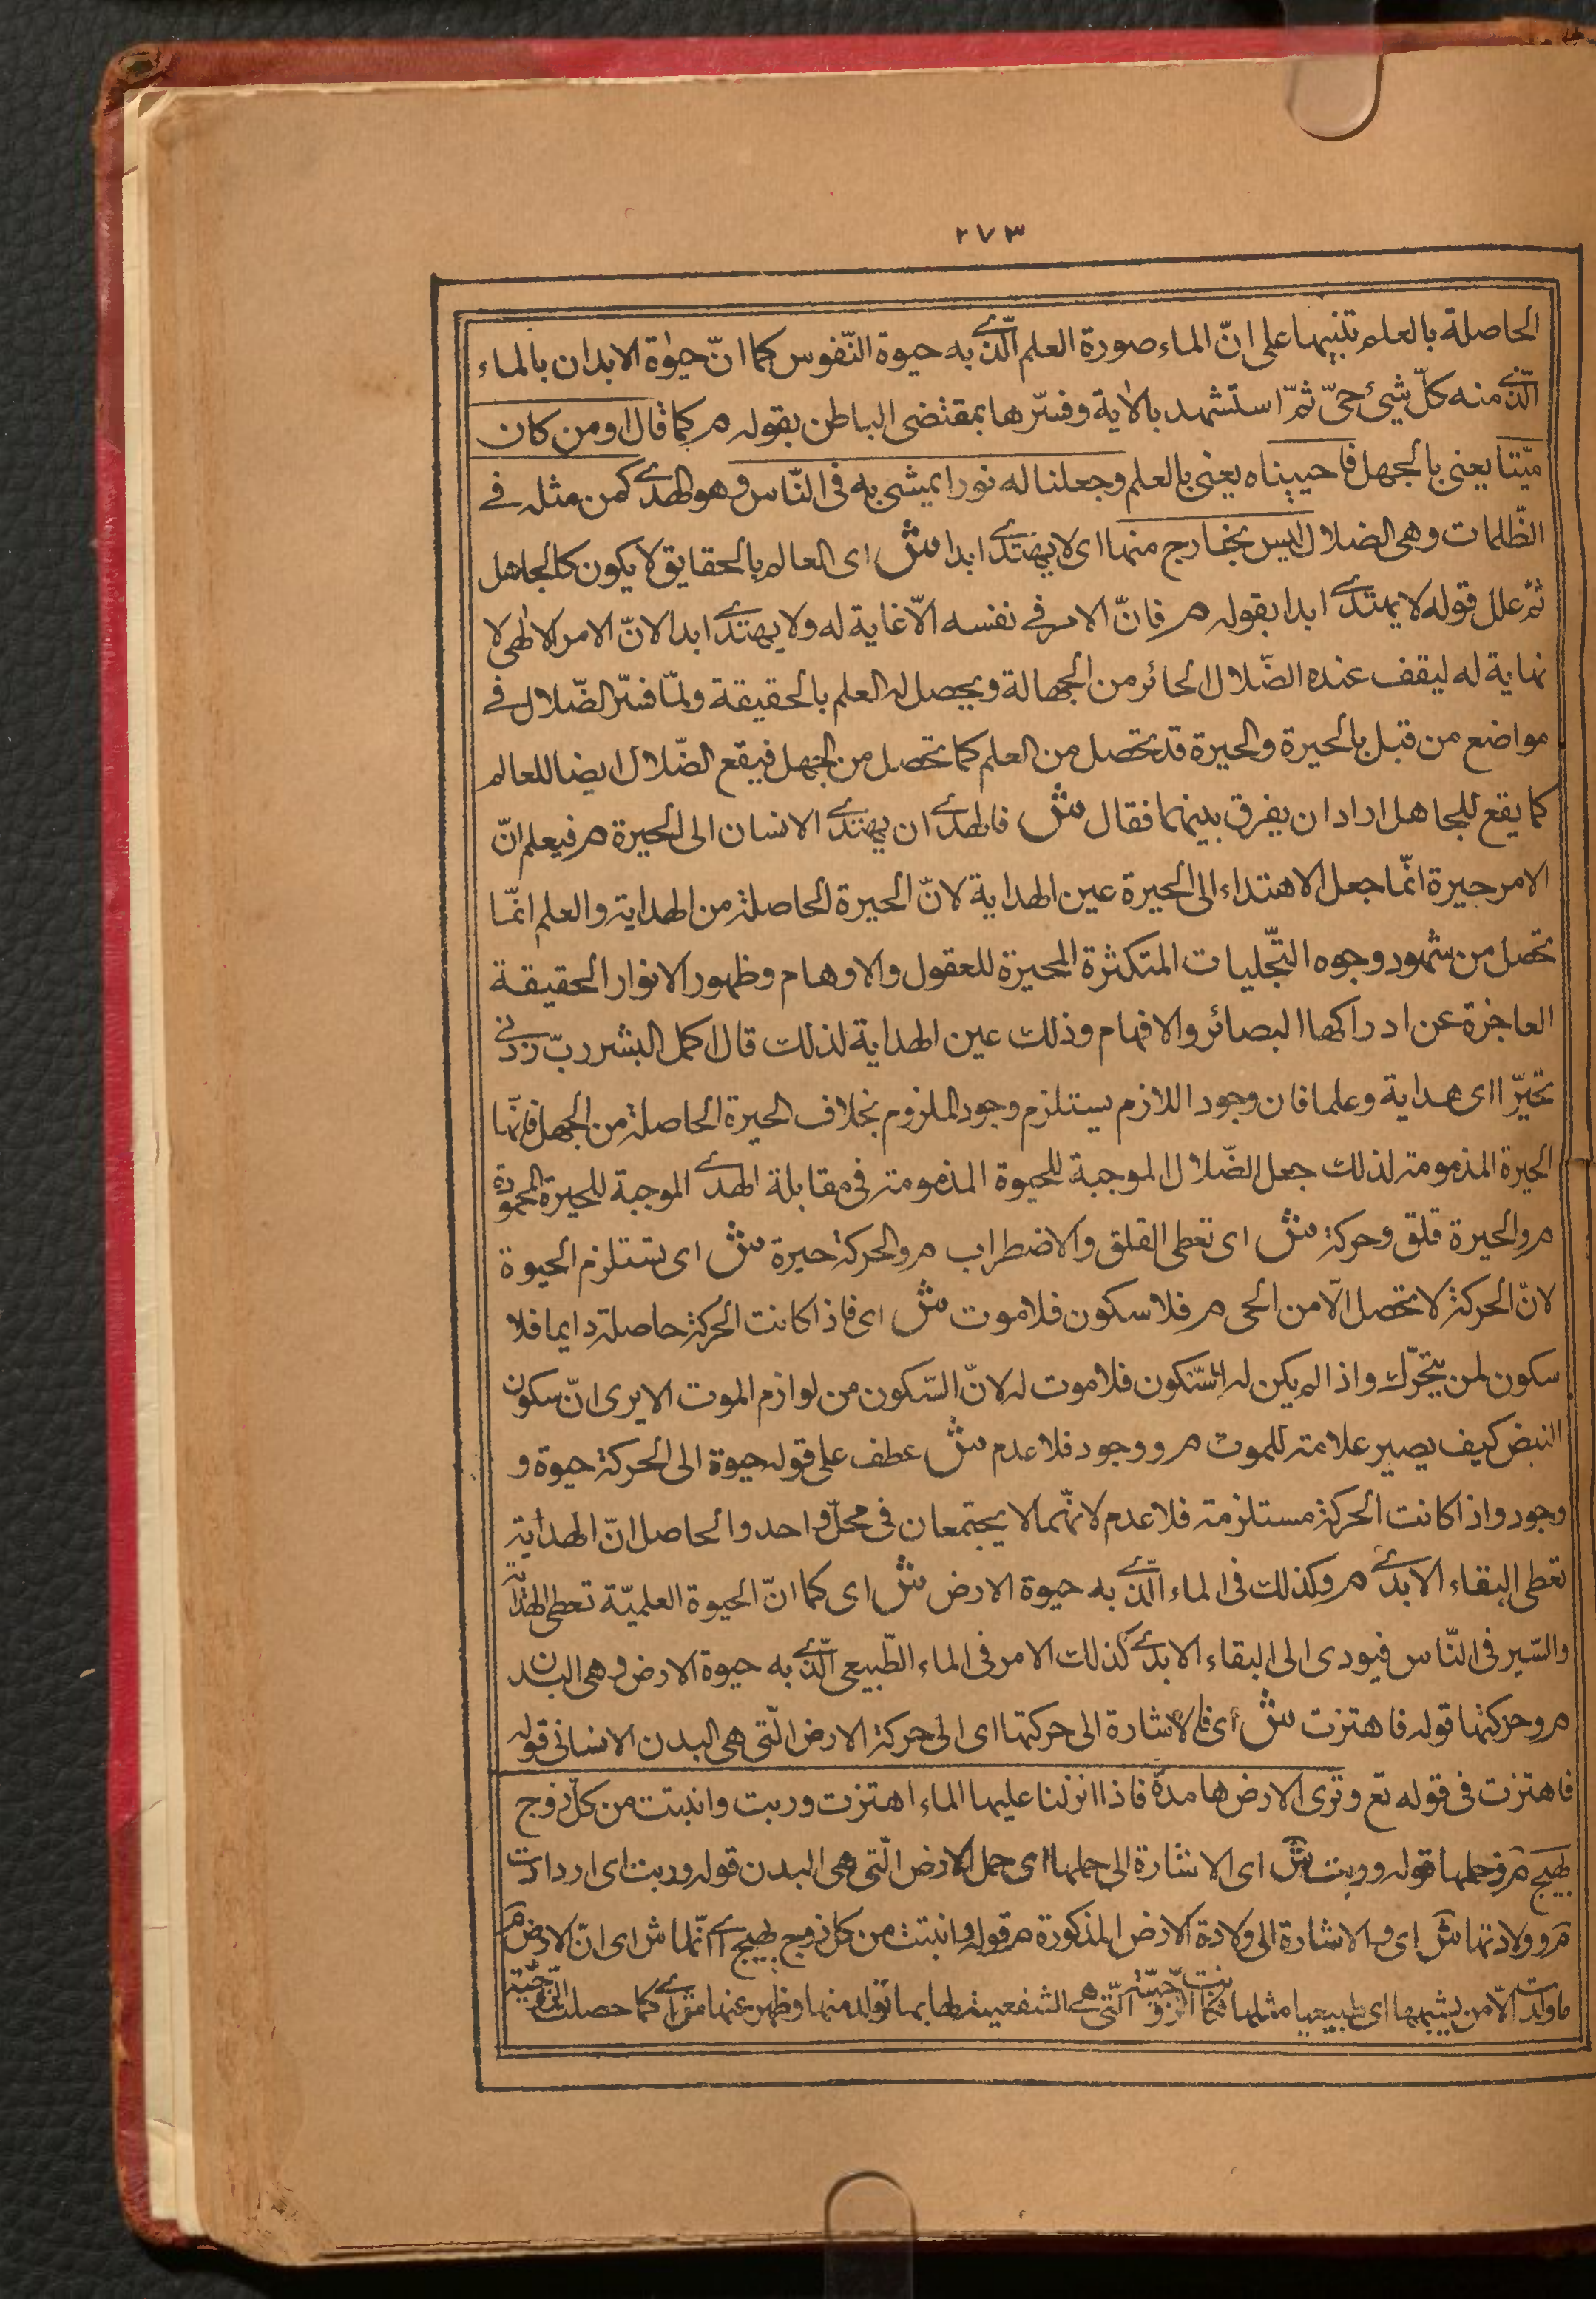 ٢٧٣
الحاصلة بالعلم تنبيها على انّ الماء صورة العلم الّذى به حيوة النّفوس كما انّ حيٰوة الابدان بالماء
الّذى منه كلّ شيئ حىّ ثمّ استشهد بالاية وفسّرها بمقتضى الباطن بقوله م كما قال اومن كان
ميّتا يعنى بالجهل فاحييناه يعنى بالعلم وجعلنا له نورا يمشى به فى النّاس وهو الهدى كمن مثله فى
الظّلمات وهى الضلال ليس بخارج منها اى لا يهتدى ابدا ش اى العالم بالحقايق لا يكون كالجاهل
ثمّ علل قوله لا يهتدى ابدا بقوله م فانّ الامر فى نفسه الّا غاية له ولا يهتدى ابدا لانّ الامر الالهى لا
نهاية له ليقف عنده الضّلال الحائر من الجهالة ويحصل له العلم بالحقيقة ولمّا فسّر الضّلال فى
مواضع من قبل بالحيرة والحيرة قد تحصل من العلم كما تحصل من الجهل فيقع الضّلال ايضا للعالم
كما يقع للجاهل اراد ان يفرق بينهما فقال ش فالهدى ان يهتدى الانسان الى الحيرة م فيعلم انّ
الامر حيرة انّما جعل الاهتداء الى الحيرة عين الهداية لانّ الحيرة الحاصلة من الهداية والعلم انّما
تحصل من شهود وجوه التّجليات المتكثرة المحيرة للعقول والاوهام وظهور الانوار الحقيقة
العاجزة عن ادراكها البصائر والافهام وذلك عين الهداية لذلك قال اكمل البشر ربّ زدنى
تحيّرا اى هداية وعلما فان وجود اللازم يستلزم وجود الملزوم بخلاف الحيرة الحاصلة من الجهل فانّها
الحيرة المذمومة لذلك جعل الضّلال الموجبة للحيوة المذمومة فى مقابلة الهدى الموجبة للحيرة المحمودة
م والحيرة قلق وحركة ش اى تعطى القلق والاضطراب م والحركة حيرة ش اى تستلزم الحيوة
لانّ الحركة لا تحصل الّا من الحى م فلا سكون فلا موت ش اى فاذا كانت الحركة حاصلة دايما فلا
سكون لمن يتحرّك واذا لم يكن له السّكون فلا موت له لانّ السّكون من لوازم الموت الا يرى انّ سكون
النبض كيف يصير علامة للموت م ووجود فلا عدم ش عطف على قوله حيوة الى الحركة حيوة و
وجود واذا كانت الحركة مستلزمة فلا عدم لانّهما لا يجتمعان فى محلّ واحد والحاصل انّ الهداية
تعطى البقاء الابدى م وكذلك فى الماء الّذى به حيوة الارض ش اى كما انّ الحيوة العلميّة تعطى الهداية
والسّير فى النّاس فيودى الى البقاء الابدى كذلك الامر فى الماء الطّبيعى الّذى به حيوة الارض وهى البدن
م وحركتها قوله فاهتزت ش اى فالاشارة الى حركتها اى الى حركة الارض الّتى هى البدن الانسانى قوله
فاهتزت فى قوله تع وترى الارض هامدة فاذا انزلنا عليها الماء اهتزت وربت وانبتت من كلّ زوج
بهيج م وحملها قوله وربت ش اى الاشارة الى حملها اى حمل الارض الّتى هى البدن قوله وربت اى ازدادت
م وولادتها ش اى والاشارة الى ولادة الارض المذكورة م قوله وانبتت من كل زوج بهيج اى انّها ش اى انّ الارض م
ما ولدت الّا من يشبهها اى طبيعيا مثلها فكانت الزوجيّة الّتى هى الشفعية لها بما تولد منها وظهر عنها ش اى كما حصلت الزوجيّة